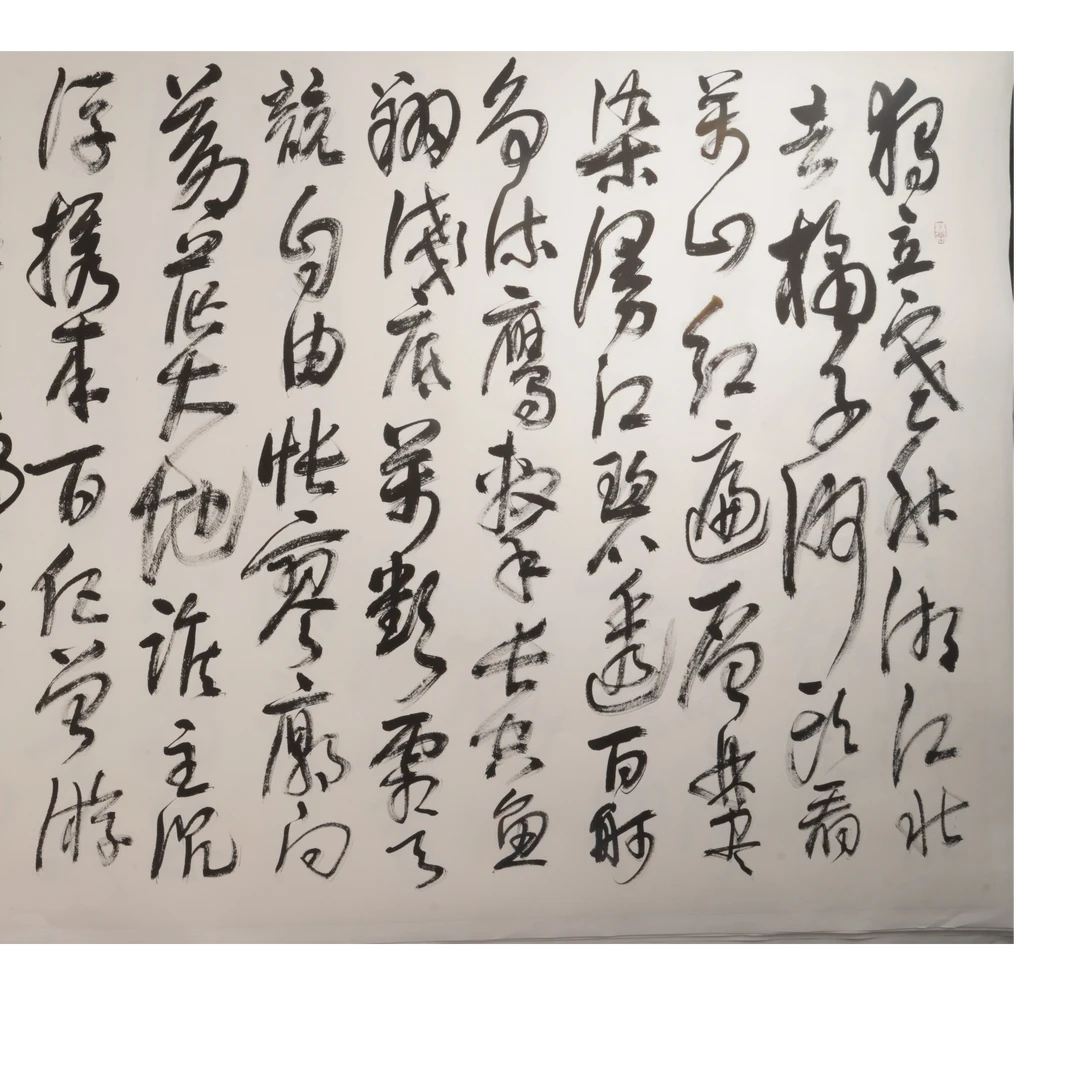 獨立寒秋湘江北
去橘子洲頭看
萬山紅遍層林盡
染漫江碧透百舸
爭流鷹擊長空魚
翔淺底萬類霜天
競自由悵寥廓問
蒼茫大地誰主沉
浮攜來百侶曾游